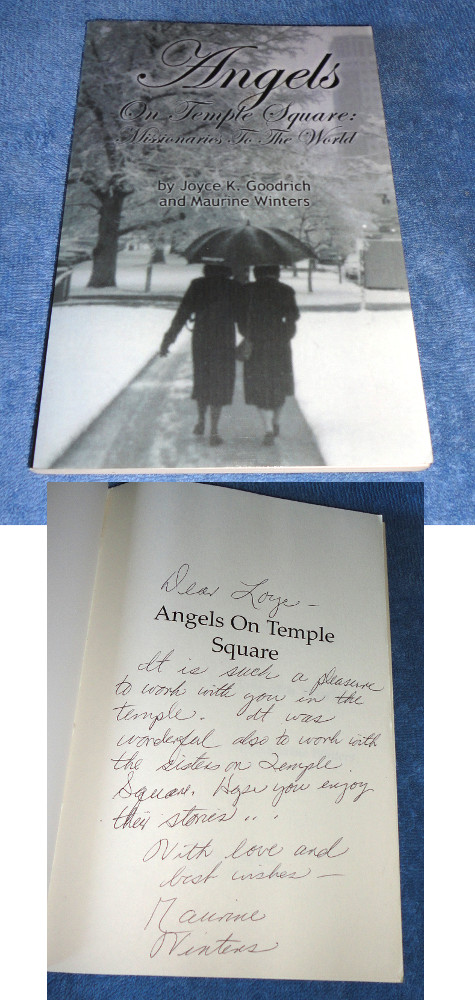 Angels
On Temple Square:
Missionaries To The World
by Joyce K. Goodrich
and Maurine Winters
Dear Loye –
Angels On Temple
Square
It is such a pleasure
to work with you in the
temple. It was
wonderful also to work with
the sisters on Temple
Square. Hope you enjoy
their stories . . .
With love and
best wishes –
Maurine
Winters